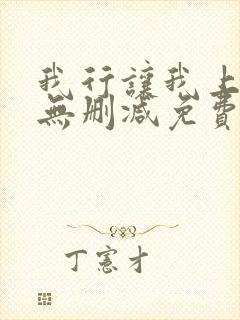 我行讓我上
無刪減免費
丁憲才